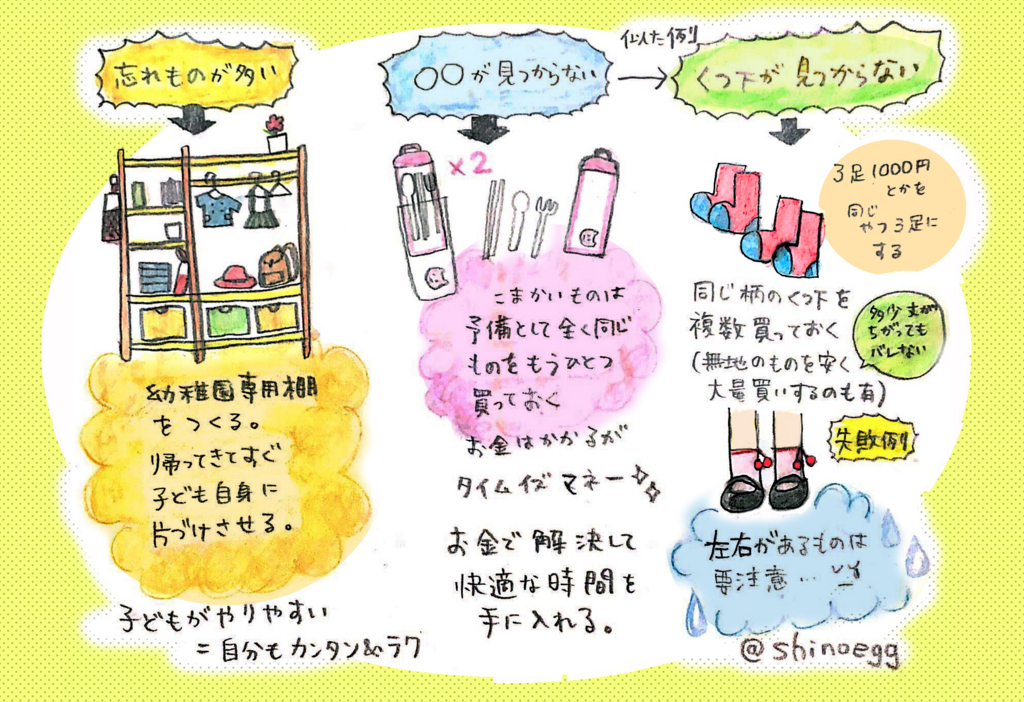 忘れものが多い
幼稚園専用棚
をつくる。
帰ってきてすぐ
子ども自身に
片づけさせる。
子どもがやりやすい
=自分もカンタン&ラク
〇〇が見つからない
×2
こまかいものは
予備として全く同じ
ものをもうひとつ
買っておく
お金はかかるが
タイムイズマネー
お金で解決して
快適な時間を
手に入れる。
似た例
くつ下が見つからない
3足1000円
とかを
同じ
やつ3足に
する
同じ柄のくつ下を
複数買っておく
(無地のものを安く
大量買いするのも有)
多少丈が
ちがっても
バレない
失敗例
左右があるものは
要注意…
@shinoegg